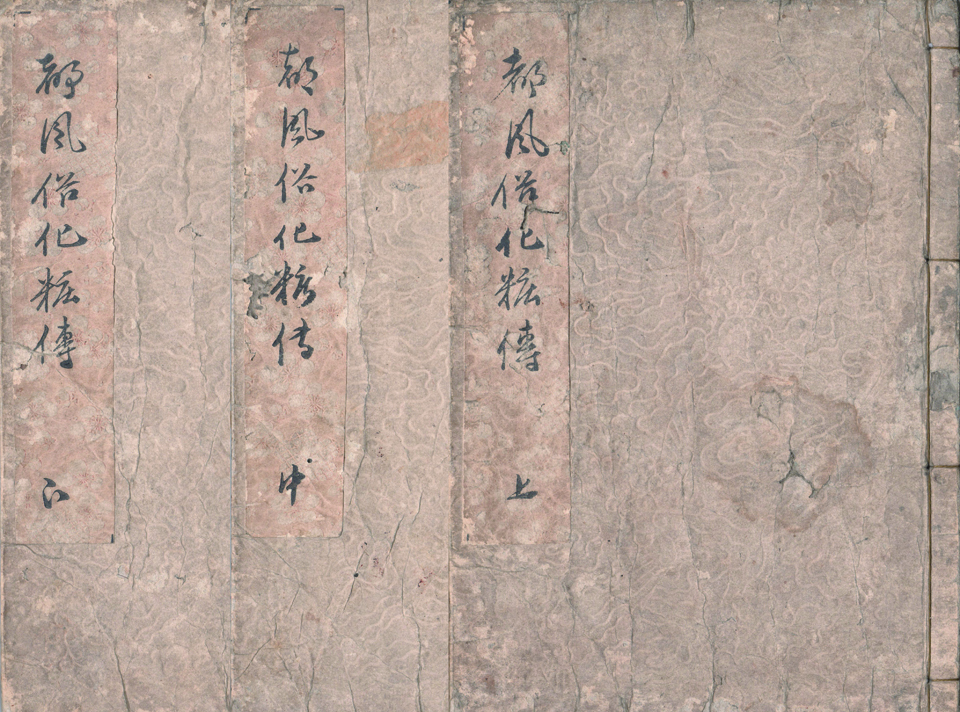 都風俗化粧傳 上
都風俗化粧伝 中
都風俗化粧傳 下